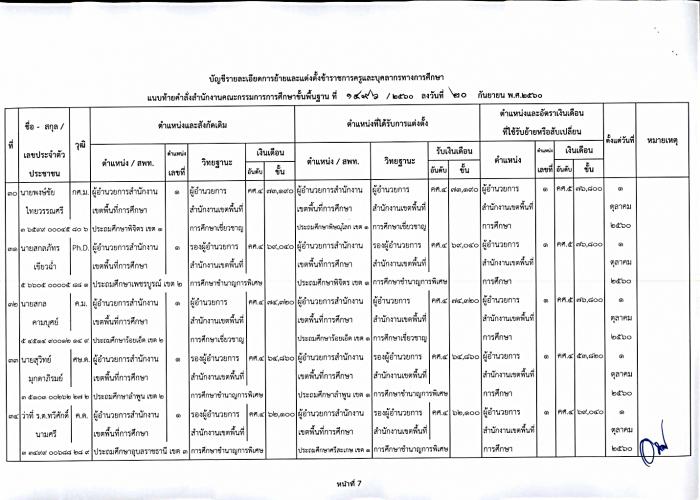 บัญชีรายละเอียดการย้ายและแต่งตั้งข้าราชการครูและบุคลากรทางการศึกษา
แนบท้ายคำสั่งสำนักงานคณะกรรมการการศึกษาขั้นพื้นฐาน ที่ ๑๔๙๖ / ๒๕๖๐ ลงวันที่ ๒๐ กันยายน พ.ศ.๒๕๖๐
ที่ ชื่อ - สกุล / เลขประจำตัว ประชาชน วุฒิ ตำแหน่งและสังกัดเดิม ตำแหน่งที่ได้รับการแต่งตั้ง ตำแหน่งและอัตราเงินเดือน ที่ใช้รับย้ายหรือสับเปลี่ยน ตั้งแต่วันที่ หมายเหตุ
ตำแหน่ง / สพท. ตำแหน่ง เลขที่ วิทยฐานะ เงินเดือน อันดับ ขั้น ตำแหน่ง / สพท. วิทยฐานะ รับเงินเดือน อันดับ ขั้น ตำแหน่ง ตำแหน่ง เลขที่ เงินเดือน อันดับ ขั้น
๓๐ นายพงษ์ชัย กศ.ม. ผู้อำนวยการสำนักงาน ๑ ผู้อำนวยการ คศ.๔ ๗๓,๑๙๐ ผู้อำนวยการสำนักงาน ผู้อำนวยการ คศ.๔ ๗๓,๑๙๐ ผู้อำนวยการ ๑ คศ.๕ ๗๖,๘๐๐ ๑
ไทยวรรณศรี เขตพื้นที่การศึกษา สำนักงานเขตพื้นที่ เขตพื้นที่การศึกษา สำนักงานเขตพื้นที่ สำนักงานเขตพื้นที่ ตุลาคม
ประถมศึกษาพิจิตร เขต ๑ การศึกษาเชี่ยวชาญ ประถมศึกษาพิษณุโลก เขต ๑ การศึกษาเชี่ยวชาญ การศึกษา ๒๕๖๐
๓๑ นายสกลภัทร Ph.D. ผู้อำนวยการสำนักงาน ๑ รองผู้อำนวยการ คศ.๔ ๖๙,๐๔๐ ผู้อำนวยการสำนักงาน รองผู้อำนวยการ คศ.๔ ๖๙,๐๔๐ ผู้อำนวยการ ๑ คศ.๕ ๗๖,๘๐๐ ๑
เขตพื้นที่การศึกษา สำนักงานเขตพื้นที่ เขตพื้นที่การศึกษา สำนักงานเขตพื้นที่ สำนักงานเขตพื้นที่ ตุลาคม
ประถมศึกษาเพชรบูรณ์ เขต ๒ การศึกษาชำนาญการพิเศษ ประถมศึกษาพิจิตร เขต ๑ การศึกษาชำนาญการพิเศษ การศึกษา ๒๕๖๐
๓๒ นายสกล ค.ม. ผู้อำนวยการสำนักงาน ๑ ผู้อำนวยการ คศ.๔ ๗๔,๓๒๐ ผู้อำนวยการสำนักงาน ผู้อำนวยการ คศ.๔ ๗๔,๓๒๐ ผู้อำนวยการ ๑ คศ.๕ ๗๖,๘๐๐ ๑
คามบุศย์ เขตพื้นที่การศึกษา สำนักงานเขตพื้นที่ เขตพื้นที่การศึกษา สำนักงานเขตพื้นที่ สำนักงานเขตพื้นที่ ตุลาคม
ประถมศึกษาร้อยเอ็ด เขต ๒ การศึกษาเชี่ยวชาญ ประถมศึกษาร้อยเอ็ด เขต ๑ การศึกษาเชี่ยวชาญ การศึกษา ๒๕๖๐
๓๓ นายสุวิทย์ ศษ.ด. ผู้อำนวยการสำนักงาน ๑ รองผู้อำนวยการ คศ.๔ ๖๔,๘๖๐ ผู้อำนวยการสำนักงาน รองผู้อำนวยการ คศ.๔ ๖๔,๘๖๐ ผู้อำนวยการ ๑ คศ.๔ ๕๓,๘๒๐ ๑
มุกดาภิรมย์ เขตพื้นที่การศึกษา สำนักงานเขตพื้นที่ เขตพื้นที่การศึกษา สำนักงานเขตพื้นที่ สำนักงานเขตพื้นที่ ตุลาคม
ประถมศึกษาลำพูน เขต ๒ การศึกษาชำนาญการพิเศษ ประถมศึกษาลำพูน เขต ๑ การศึกษาชำนาญการพิเศษ การศึกษา ๒๕๖๐
๓๔ ว่าที่ ร.ต.ทวีศักดิ์ ค.ด. ผู้อำนวยการสำนักงาน ๑ รองผู้อำนวยการ คศ.๔ ๖๒,๑๐๐ ผู้อำนวยการสำนักงาน รองผู้อำนวยการ คศ.๔ ๖๒,๑๐๐ ผู้อำนวยการ ๑ คศ.๔ ๖๙,๐๔๐ ๑
นามศรี เขตพื้นที่การศึกษา สำนักงานเขตพื้นที่ เขตพื้นที่การศึกษา สำนักงานเขตพื้นที่ สำนักงานเขตพื้นที่ ตุลาคม
ประถมศึกษาอุบลราชธานี เขต ๓ การศึกษาชำนาญการพิเศษ ประถมศึกษาศรีสะเกษ เขต ๑ การศึกษาชำนาญการพิเศษ การศึกษา ๒๕๖๐
หน้าที่ 7